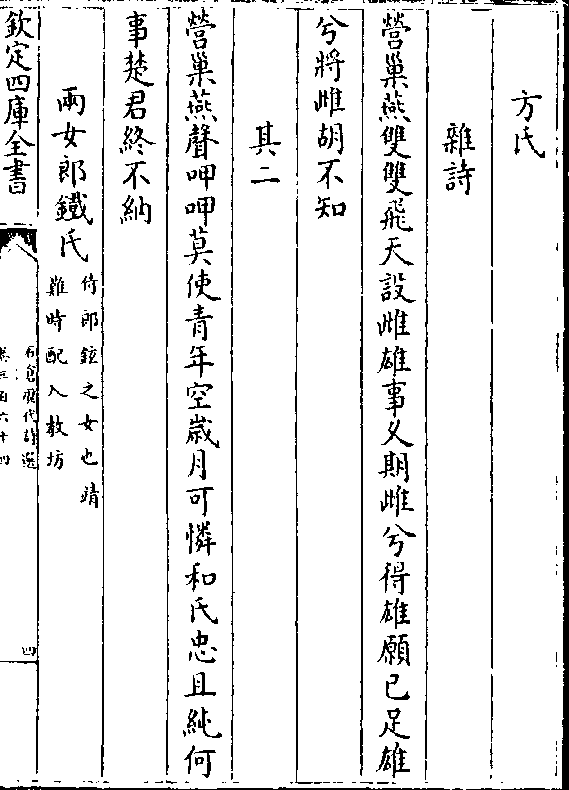 方氏
雜詩
營巢燕雙雙飛天設雌雄事乆期雌兮得雄願已足雄
兮將雌胡不知
其二
營巢燕聲呷呷莫使青年空歲月可憐和氏忠且純何
事楚君終不納
兩女郎鐵氏
侍郎鉉之女也靖
難時配入教坊
欽定四庫全書
石倉歴代詩選
卷三百六十四
四